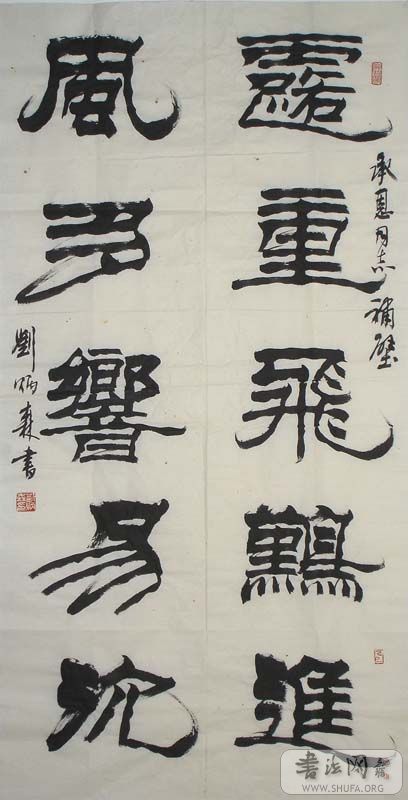 承恩同志補壁
露重飛難進
風多響易沈
劉炳森書
書法网
WWW.SHUFA.ORG